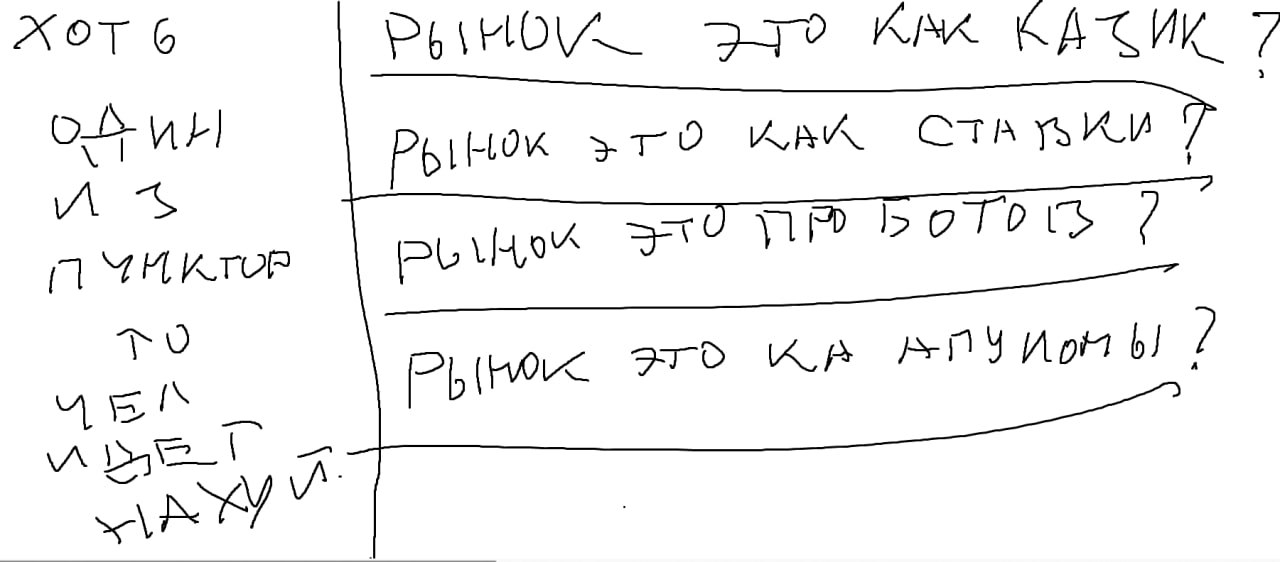 ХОТ Б
ОДИН
ИЗ
ПУНКТОР
ТО
ЧЕЛ
ИДЕТ
НАХУЙ.
РЫНОК ЭТО КАК КАЗИК?
РЫНОК ЭТО КАК СТАВКИ?
РЫНОК ЭТО ПРО БОТОВ?
РЫНОК ЭТО КА